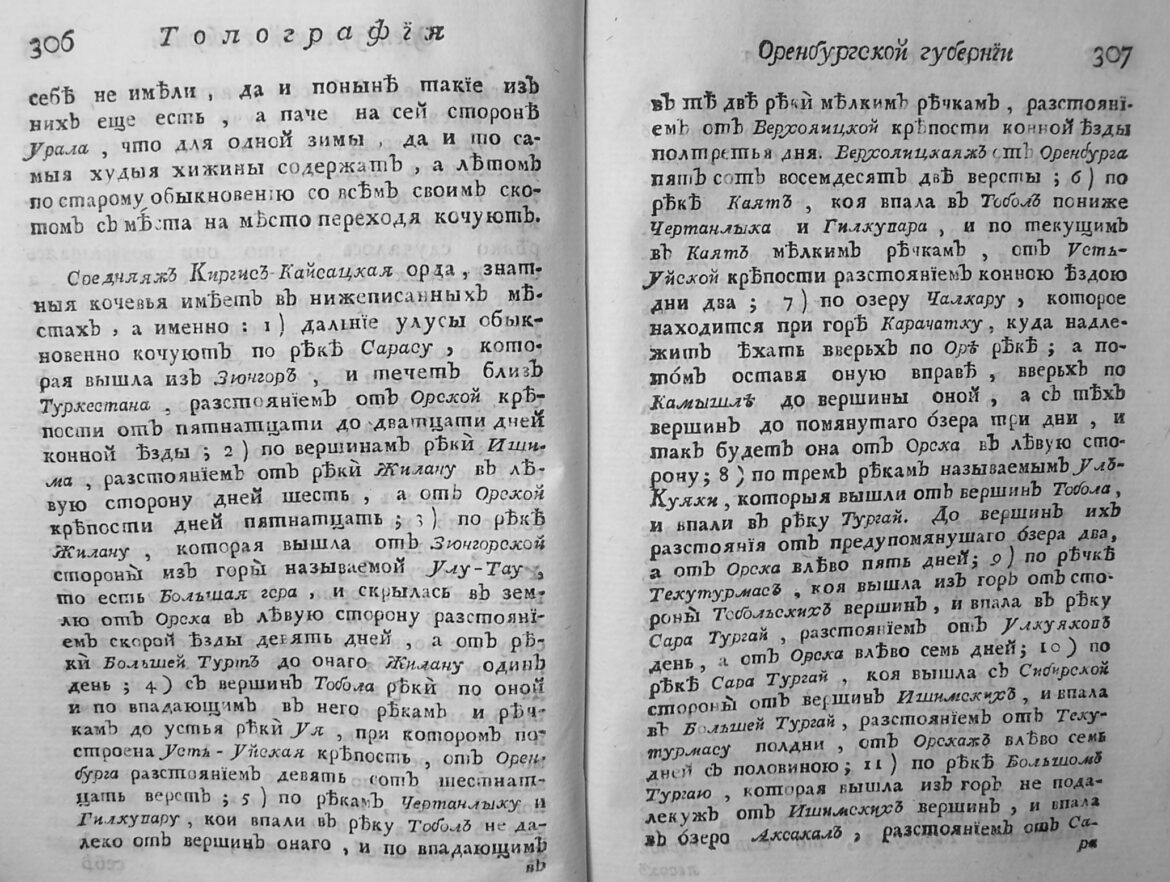 306 Топографїя
себѣ не имѣли , да и понынѣ такїе изъ
нихъ еще есть , а паче на сей сторонѣ
Урала , что для одной зимы , да и то са-
мыя худыя хижины содержатъ , а лѣтомъ
по старому обыкновению со всѣмъ своимъ ско-
томъ съ мѣста на мѣсто переходя кочуютъ.
Соедняяжъ Киргисъ-Кайсацкая орда , знат-
ныя кочевья имѣетъ въ нижеписанныхъ мѣ-
стахъ , а именно : 1 ) дальнїе улусы обык-
новенно кочуютъ по рѣкѣ Сарасу , кото-
рая вышла изъ Зюнгоръ , и течетъ близъ
Туркестана , разстоянїемъ отъ Орской крѣ-
пости отъ пятнатцати до дватцати дней
конной ѣзды ; 2 ) по вершинамъ рѣки Иши-
ма , разстоянїемъ отъ рѣки Жилану въ лѣ-
вую сторону дней шесть , а отъ Орской
крѣпости дней пятнатцать ; 3 ) по рѣкѣ
Жилану , которая вышла отъ Зюнгорской
стороны изъ горы называемой Улу-Тау ,
то есть Большая гора , и скрылась въ зем-
лю отъ Орска въ лѣвую сторону разстоянї-
емъ скорой ѣзды девять дней , а отъ рѣ-
ки Большей Туртъ до онаго Жилану одинъ
день ; 4 ) съ вершинъ Тобола рѣки по оной
и по впадающимъ въ него рѣкамъ и рѣч-
камъ до устья рѣки Уя , при которомъ по-
строена Усть - Уйская крѣпость , отъ Орен-
бурга разстоянїемъ девять сотъ шестнат-
цать верстъ ; 5 ) по рѣкамъ Чертанлыку и
Гилкупару , кои впали въ рѣку Тоболъ не да-
леко отъ вершинъ онаго , и по впадающимъ
въ
Оренбургской губернїи 307
въ тѣ двѣ рѣки мѣлкимъ рѣчкамъ , разстоянї-
емъ отъ Верхояицкой крѣпости конной ѣзды
полтретья дня. Верхояицкаяжъ отъ Оренбурга
пять сотъ восемдесятъ двѣ версты ; 6 ) по
рѣкѣ Каятъ , коя впала въ Тоболъ пониже
Чертанлыка и Гилкупара , и по текущимъ
въ Каятъ мѣлкимъ рѣчкамъ , отъ Усть-
Уйской крѣпости разстоянїемъ конною ѣздою
дни два ; 7 ) по озеру Чалкару , которое
находится при горѣ Карачатку , куда надле-
житъ ѣхать вверьхъ по Орѣ рѣкѣ ; а по-
томъ оставя оную вправѣ , вверьхъ по
Камышлѣ до вершины оной , а съ тѣхъ
вершинъ до помянутаго озера три дни , и
такъ будетъ она отъ Орска въ лѣвую сто-
рону ; 8 ) по тремъ рѣкамъ называемымъ Улъ-
Куяки , которыя вышли отъ вершинъ Тобола ,
и впали въ рѣку Тургай. До вершинъ ихъ
разстоянїя отъ предупомянушаго озера два,
а отъ Орска влѣво пять дней; 9 ) по рѣчкѣ
Текутурмасъ , коя вышла изъ горъ отъ сто-
роны Тобольскихъ вершинъ , и впала въ рѣку
Сара Тургай , разстоянїемъ отъ Улкуяковъ
день , а отъ Орска влѣво семь дней; 10 ) по
рѣкѣ Сара Тургай , коя вышла съ Сибирской
стороны отъ вершинъ Ишимскихъ , и впала
въ Большей Тургай , разстоянїемъ отъ Теку-
турмасу полдни , отъ Орскажъ влѣво семь
дней съ половиною; 11 ) по рѣкѣ Большомъ
Тургаю , которая вышла изъ горъ не пода-
лекужъ отъ Ишимскихъ вершинъ , и впала
въ озеро Аксакалъ , разстоянїемъ отъ Са-
ра